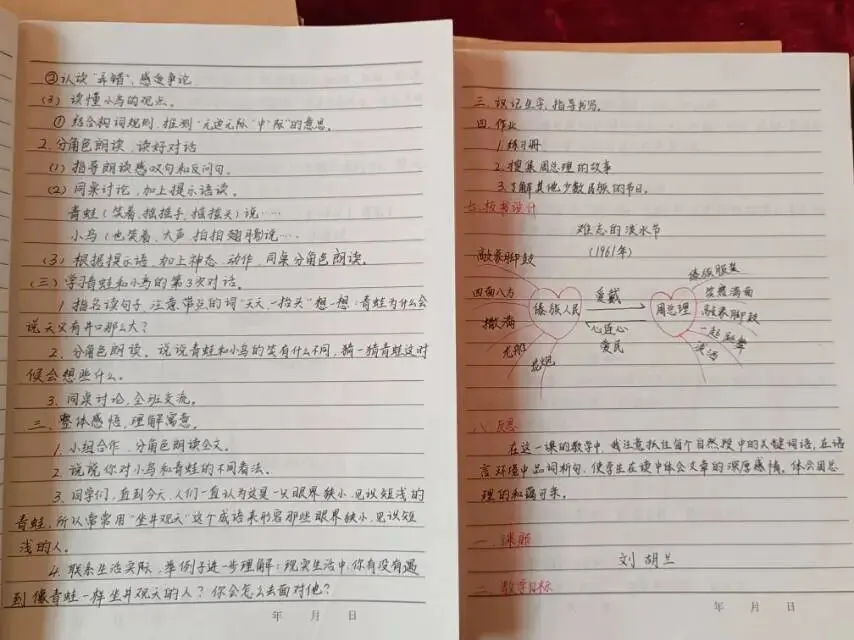 ②认读“弄错”、感受争论
(3) 读懂小鸟的观点。
①结合构词规则,推测“无边无际”中“际”的意思。
2.分角色朗读,读好对话
(1) 指导朗读感叹句和反问句。
(2) 同桌讨论,加上提示语读。
青蛙(笑着、摇摇手、摇摇头)说……
小鸟(也笑着、大声、拍拍翅膀)说……
(3) 根据提示语,加上神态、动作,同桌分角色朗读。
(三)学习青蛙和小鸟的第3次对话。
1.指名读句子,注意带点的词“天天、一抬头”想一想:青蛙为什么会
说天只有井口那么大?
2.分角色朗读。说说青蛙和小鸟的笑有什么不同,猜一猜青蛙这时
候会想些什么。
3.同桌讨论,全班交流。
三、整体感悟,理解寓意。
1.小组合作,分角色朗读全文。
2.说说你对小鸟和青蛙的不同看法。
3.同学们,直到今天,人们一直认为这是一只眼界狭小、见识短浅的
青蛙,所以常常用“坐井观天”这个成语来形容那些眼界狭小、见识短
浅的人。
4.联系生活实际,举例子进一步理解:现实生活中,你有没有遇
到像青蛙一样坐井观天的人?你会怎么去面对他?
年 月 日
三、识记生字,指导书写。
四、作业
1.练习册
2.搜集周总理的故事
3.了解其他少数民族的节日。
七、板书设计
难忘的泼水节
(1961年)
敲象脚鼓
四面八方
撒满
龙船
花炮
傣族人民
爱戴
心连心
爱民
周总理
傣族服装
笑容满面
敲象脚鼓
一起跳舞
泼洒
八、反思
在这一课的教学中,我注意抓住每个自然段中的关键词语,在语
言环境中品词析句,使学生在读中体会文章的深厚感情,体会周总
理的和蔼可亲。
一、课题
刘胡兰
二、教学目标
年 月 日